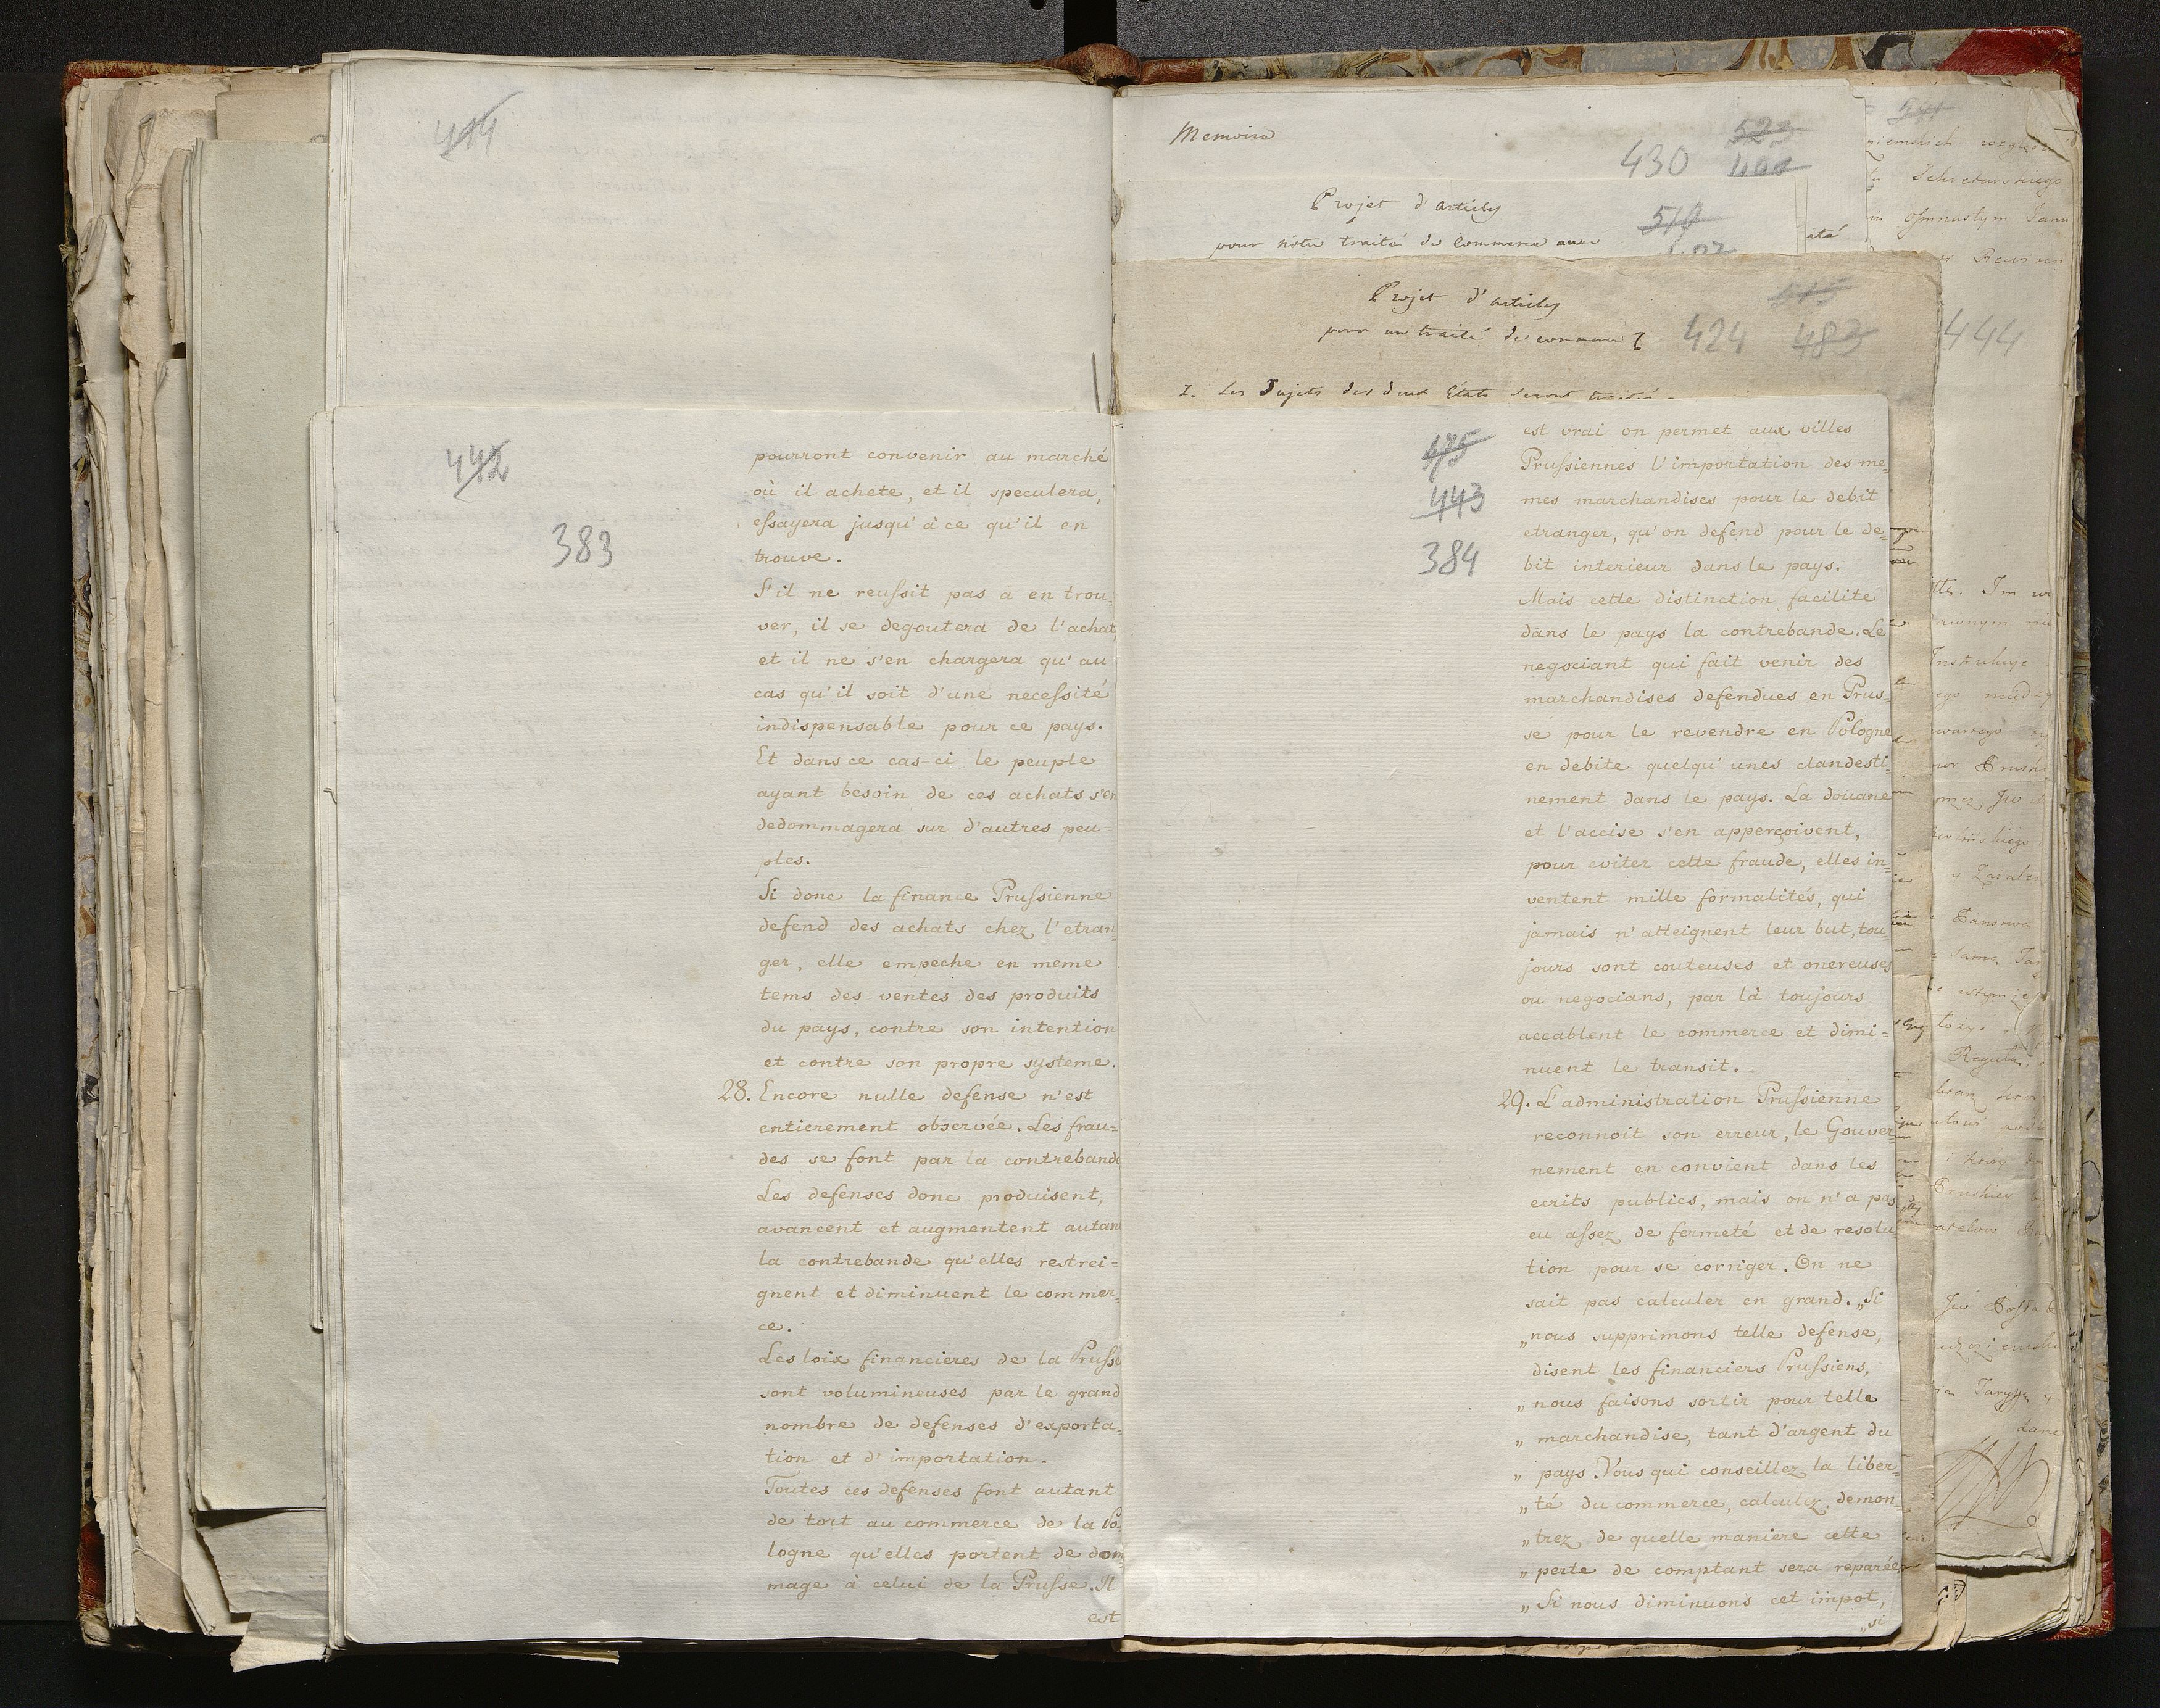 414
442
383
pourront convenir au marché
où il achete, et il speculera,
essayera jusqu'à ce qu'il en
trouve.
S'il ne reussit pas a en trou=
ver, il se degoutera de l'achat,
et il ne s'en chargera qu'au
cas qu'il soit d'une necessité
indispensable pour ce pays.
Et dans ce cas-ci le peuple
ayant besoin de ces achats s'en
dedommagera sur d'autres peu=
ples.
Si donc la finance Prussienne
defend des achats chez l'etran=
ger, elle empeche en meme
tems des ventes des produits
du pays, contre son intention
et contre son propre systeme.
28. Encore nulle defense n'est
entierement observée. Les frau=
des se font par la contrebande
Les defenses donc produisent,
avancent et augmentent autant
la contrebande qu'elles restrei=
gnent et diminuent le commer=
ce.
Les loix financieres de la Prusse
sont volumineuses par le grand
nombre de defenses d'exporta=
tion et d'importation.
Toutes ces defenses font autant
de tort au commerce de la Po=
logne qu'elles portent de dom
mage à celui de la Prusse. Il
est
Memoire
523
430
Projet d'articles
519
pour nôtre traité de Commerce avec
Projet d'articles
515
pour un traité de commerce
424 483
I. Les Sujets des deux Etats seront
475
443
384
est vrai on permet aux villes
Prussiennes l'importation des me=
mes marchandises pour le debit
etranger, qu'on defend pour le de=
bit interieur dans le pays.
Mais cette distinction facilite
dans le pays la contrebande. Le
negociant qui fait venir des
marchandises defendues en Prus=
se pour le revendre en Pologne
en debite quelqu'unes clandesti=
nement dans le pays. La douane
et l'accise s'en apperçoivent,
pour eviter cette fraude, elles in=
ventent mille formalités, qui
jamais n'atteignent leur but, tou=
jours sont couteuses et onereuses
ou negocians, par là toujours
accablent le commerce et dimi=
nuent le transit.
29. L'administration Prussienne
reconnoit son erreur, le Gouver=
nement en convient dans les
ecrits publics, mais on n'a pas
eu assez de fermeté et de resolu
tion pour se corriger. On ne
sait pas calculer en grand. „Si
„nous supprimons telle defense,
disent les financiers Prussiens,
„nous faisons sortir pour telle
„marchandise, tant d'argent du
„pays. Vous qui conseillez la liber=
„té du commerce, calculez, demon=
„trez de quelle maniere cette
„perte de comptant sera reparée
„Si nous diminuons cet impot,
„si
444